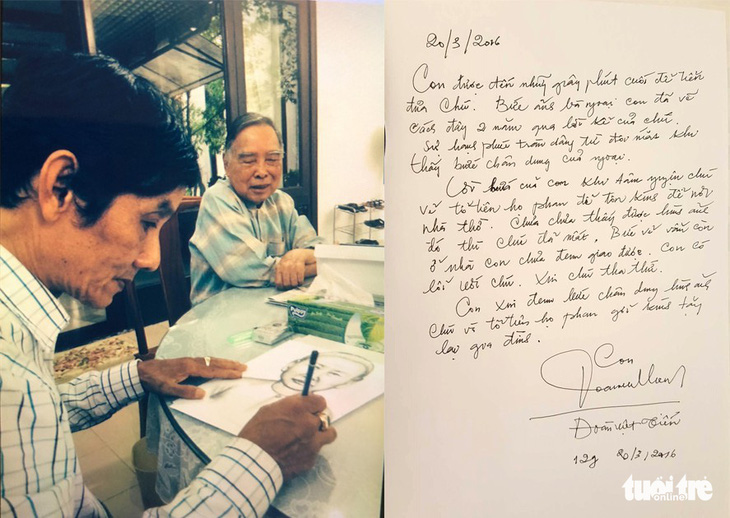 20/3/2016
Con được đến những giây phút cuối để tiễn
đưa Chú. Bức ảnh bà ngoại con đã vẽ
cách đây 2 năm qua lời kể của chú.
Sự hạnh phúc trào dâng từ đôi mắt khi
thấy bức chân dung của ngoại.
Lời của con khi tâm nguyện chú
vẽ tổ tiên họ phan để tôn kính để nơi
nhà thờ. Chưa thấy được hình ảnh
đó thì chú đã mất, Bức vẽ vẫn còn
ở nhà con chưa đem giao được. Con có
lỗi với chú. Xin chú tha thứ.
Con xin đem bức chân dung hình ảnh
chú và tổ tiên họ phan gửi kính tặng
lại gia đình.
Con
Đoàn Việt Tiến
12g 20/3/2016
tuổi trẻ
online